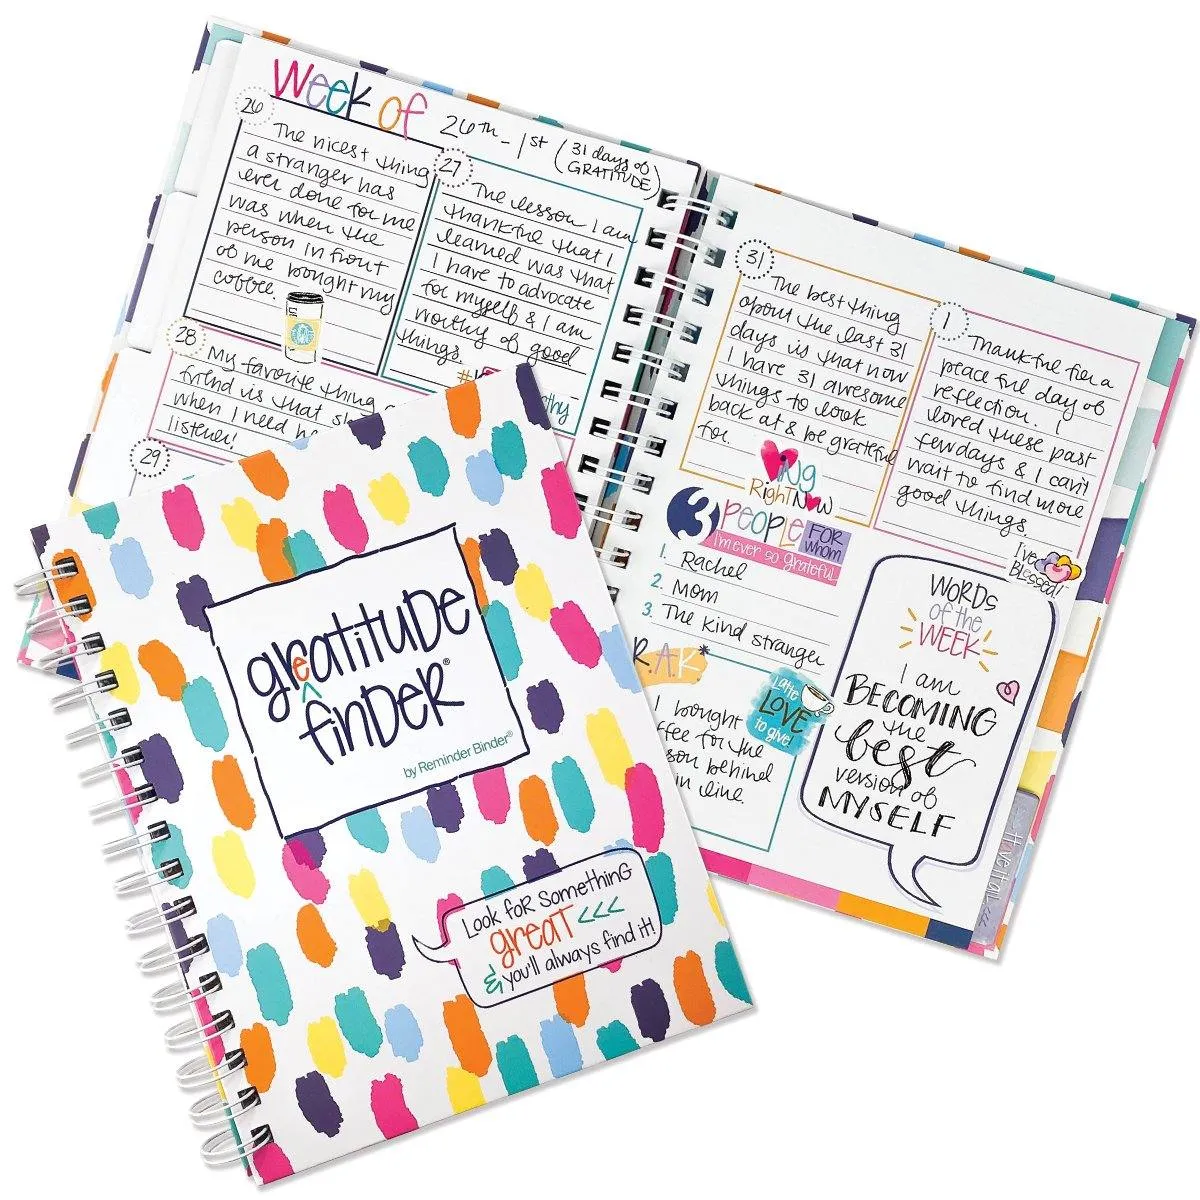 Week of
26th - 1st (31 days of GRATITUDE)
26
The nicest thing
a stranger has
ever done for me
was when the
person in front
of me bought my
coffee.
27
The lesson I am
thankful that I
learned was that
I have to advocate
for myself & I am
worthy of good
things.
28
My favorite thing
friend is that
when I need
listener!
29
31
The best thing
about the last 31
days is that now
I have 31 awesome
things to look
back at & be grateful
for.
RIGHT NOW
1
Thankful for a
peaceful day of
reflection. I
loved these past
few days & I can't
wait to find more
good things
I've
BLessed!
3 PEOPLE FOR WHOM
I'm ever so grateful
1. Rachel
2. Mom
3. The kind stranger
R.A.K*
I bought
for the
behind
in line.
Latte
LOVE
to give!
WORDS
of the
WEEK
I am
BECOMING
the
best
version of
MYSELF
greatituDe
finDeR®
by Reminder Binder®
Look for something
great <<<
& you'll always find it!